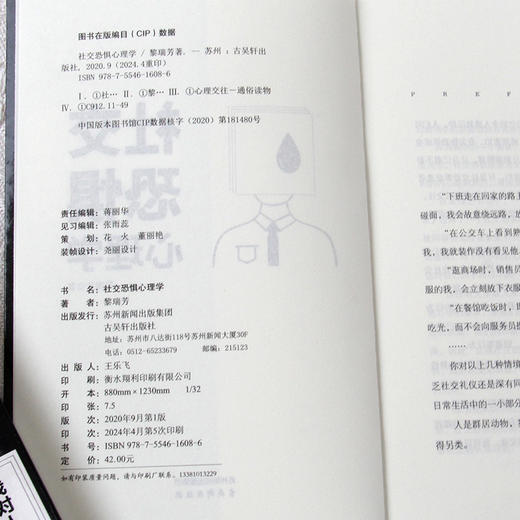 图书在版编目（CIP）数据
社交恐惧心理学 / 黎瑞芳著. — 苏州：古吴轩出
版社，2020.9（2024.4重印）
ISBN 978-7-5546-1608-6
Ⅰ. ①社… Ⅱ. ①黎… Ⅲ. ①心理交往－通俗读物
Ⅳ. ①C912.11-49
中国版本图书馆CIP数据核字（2020）第181480号
责任编辑：蒋丽华
见习编辑：张雨蕊
策 划：花 火 董丽艳
装帧设计：尧丽设计
书 名：社交恐惧心理学
著 者：黎瑞芳
出版发行：苏州新闻出版集团
古吴轩出版社
地址：苏州市八达街118号苏州新闻大厦30F
电话：0512-65233679 邮编：215123
出 版 人：王乐飞
印 刷：衡水翔利印刷有限公司
开 本：880mm×1230mm 1/32
印 张：7.5
版 次：2020年9月第1版
印 次：2024年4月第5次印刷
书 号：ISBN 978-7-5546-1608-6
定 价：42.00元
如有印装质量问题，请与印刷厂联系。13381013229
P R E F
“下班走在回家的路上
碰面，我会故意绕远路，
“在公交车上看到熟
我，我就装作没有看见他。
“逛商场时，销售员
服的我，会立刻放下衣服
“在餐馆吃饭时，即
吃光，而不会向服务员提
……
你对以上几种情境
乏社交礼仪还是深有同
日常生活中的一小部分
人是群居动物，
得另类。